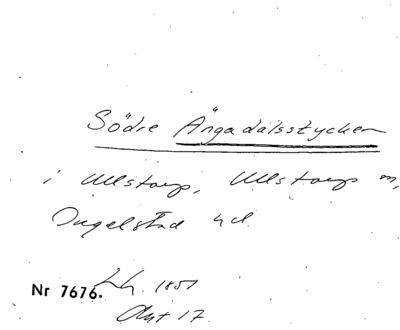 Södre Ängadalsstycken
i Ullstorp, Ullstorps sn,
Ingelstad hd.
Nr 7676. Lh. 1851
Akt 17.